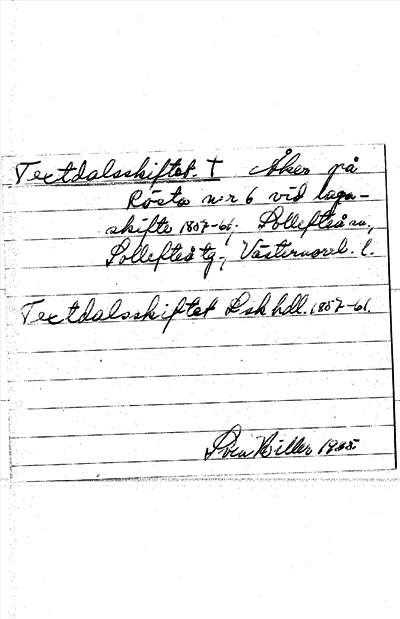 Textdalsskiftet † Åker på
Rösta n:r 6 vid laga-
skifte 1857-61. Sollefteå sn.,
Sollefteå tg., Västernorrl. l.
Textdalsskiftet Lskhdl. 1857-61.
Sven Biller 1935